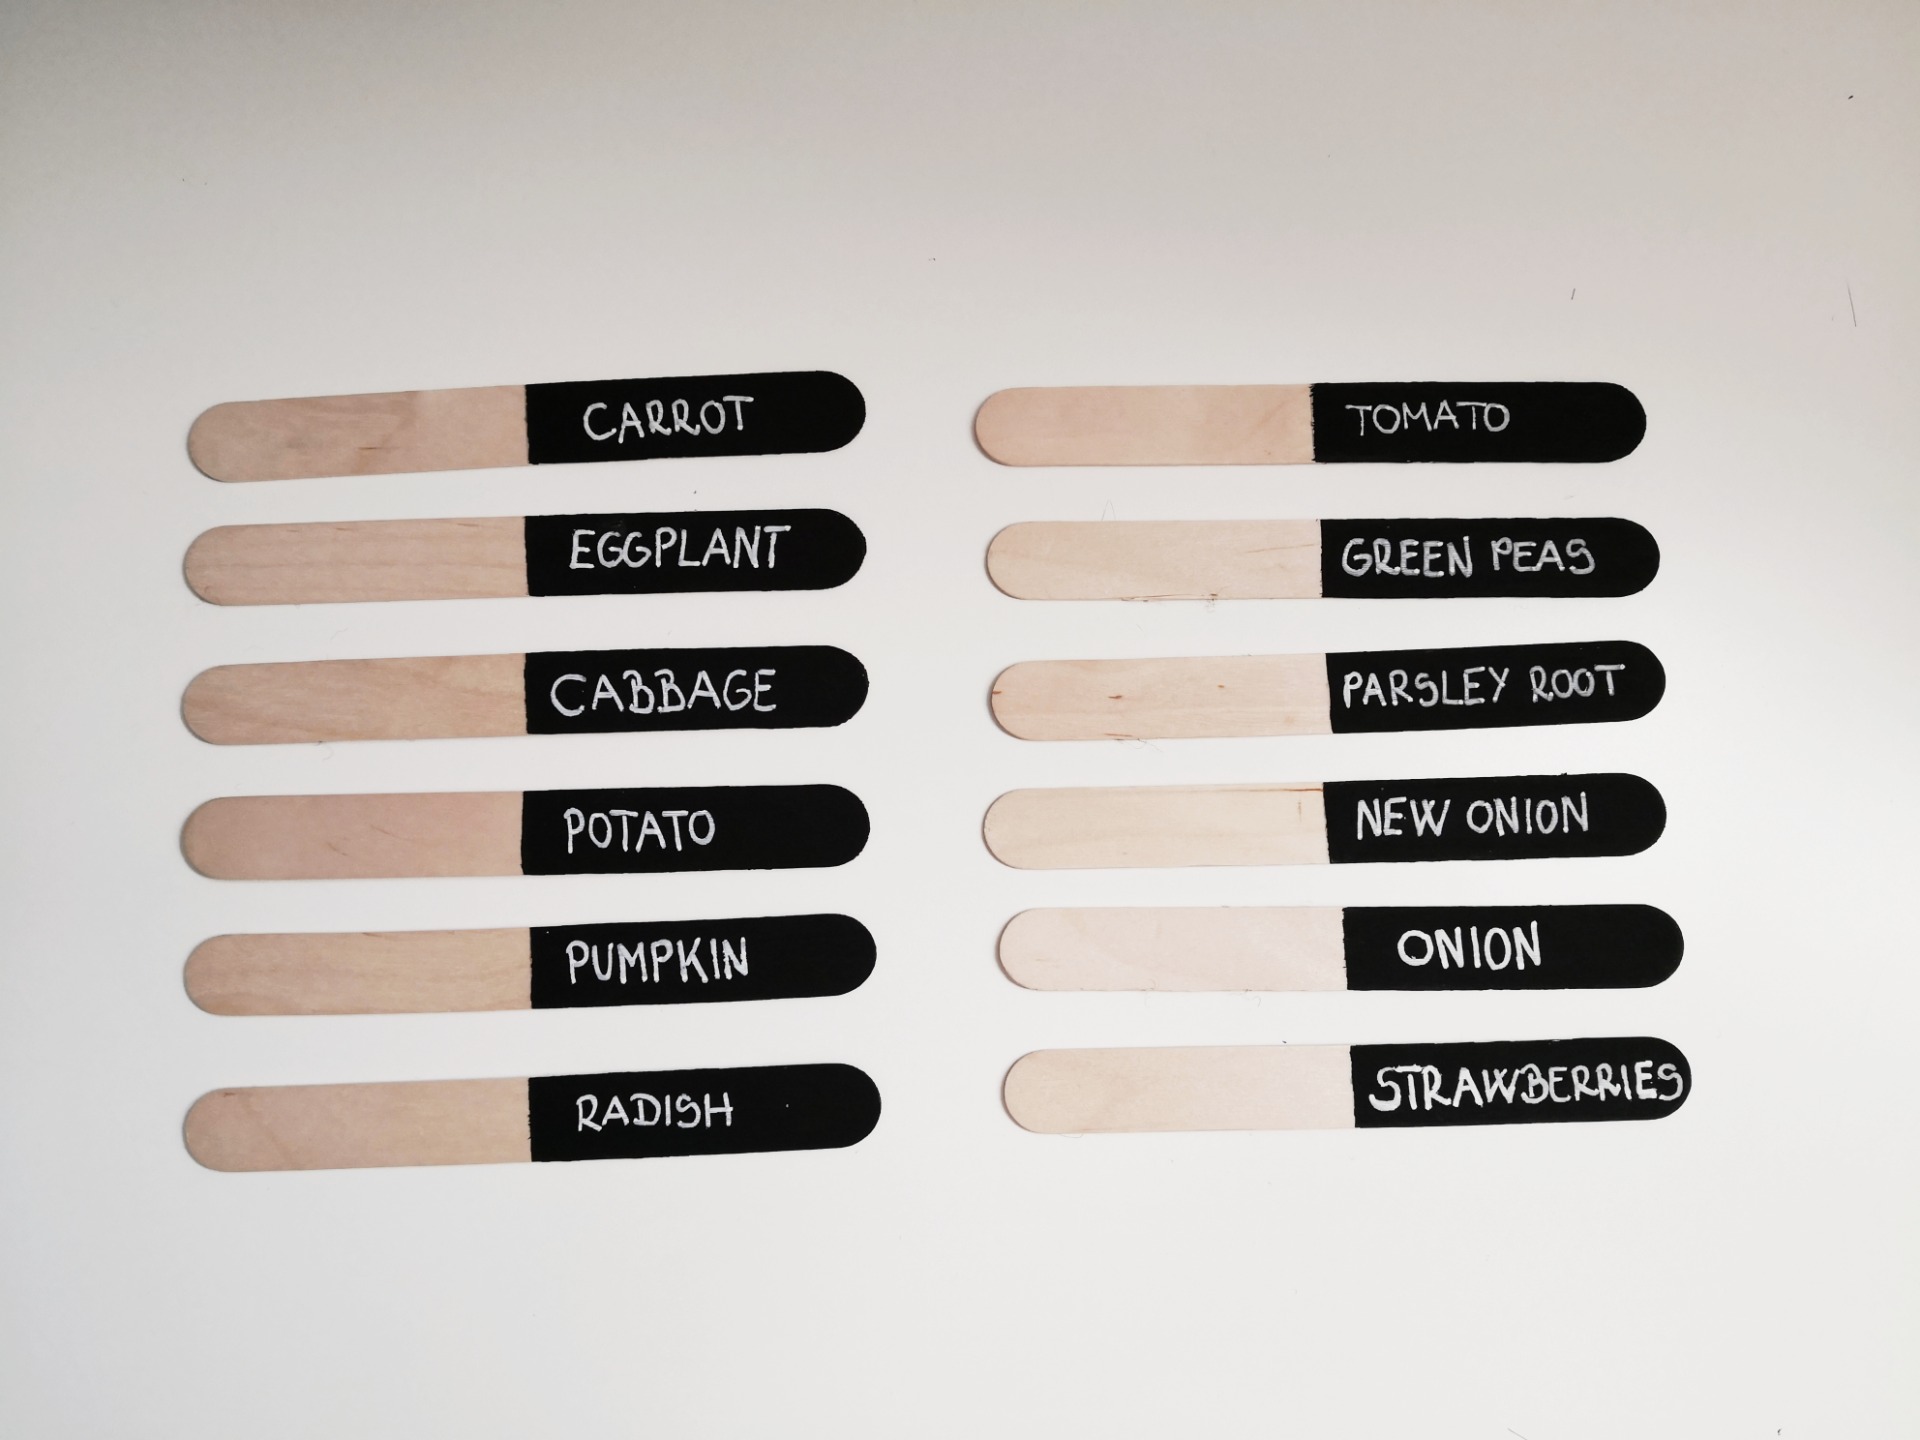 CARROT
EGGPLANT
CABBAGE
POTATO
PUMPKIN
RADISH
TOMATO
GREEN PEAS
PARSLEY ROOT
NEW ONION
ONION
STRAWBERRIES